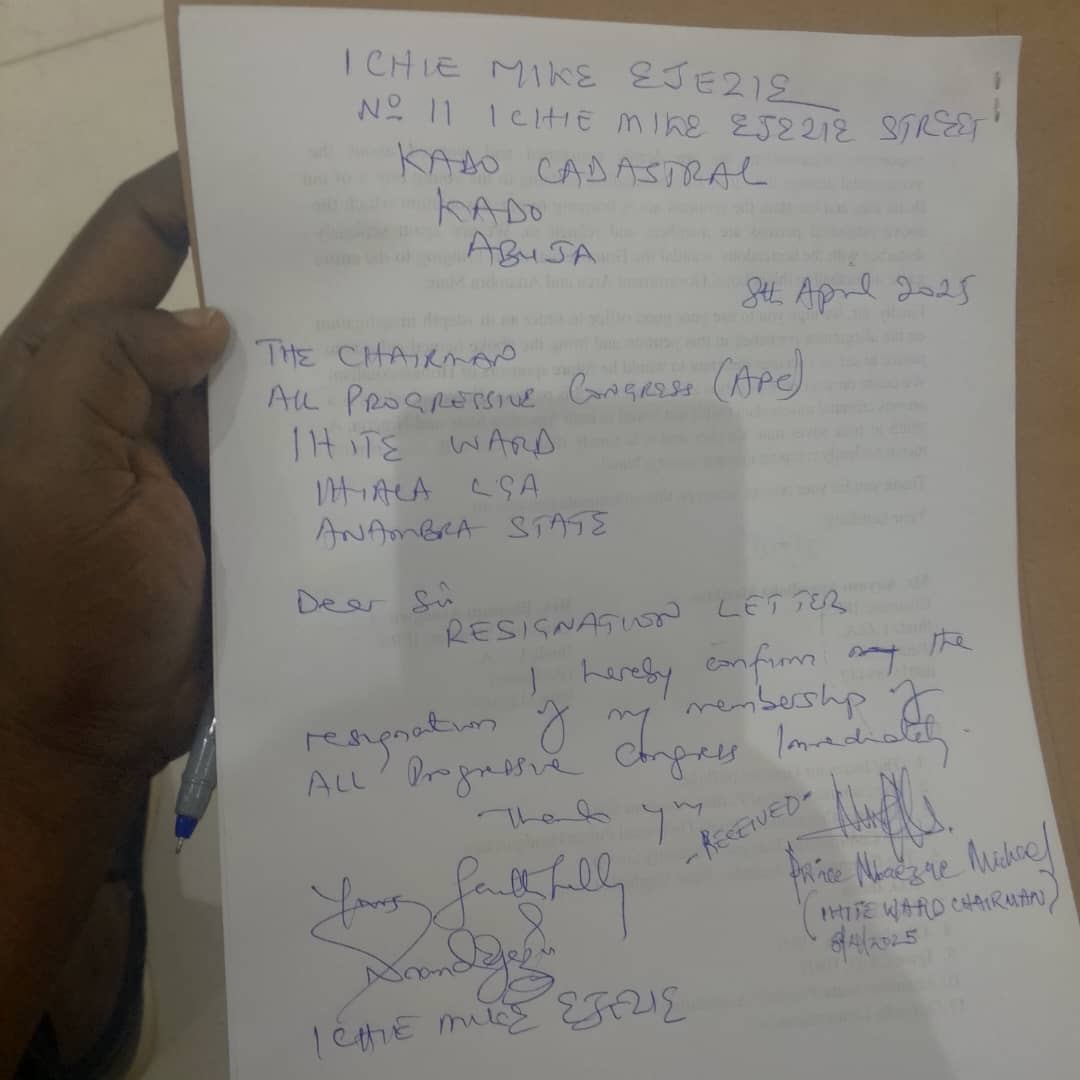 ICHIE MIKE EJEZIE
No 11 ICHIE MIKE EJEZIE STREET
KADO CADASTRAL
KADO
ABUJA
8th April 2025
THE CHAIRMAN
ALL PROGRESSIVE CONGRESS (APC)
IHITE WARD
IHIALA LGA
ANAMBRA STATE
Dear Sir
RESIGNATION LETTER
I hereby confirm the
resignation of my membership of
ALL Progressive Congress Immediately.
Thank you
RECEIVED
Yours faithfully
Prince Michael
(IHITE WARD CHAIRMAN)
8/4/2025
ICHIE MIKE EJEZIE